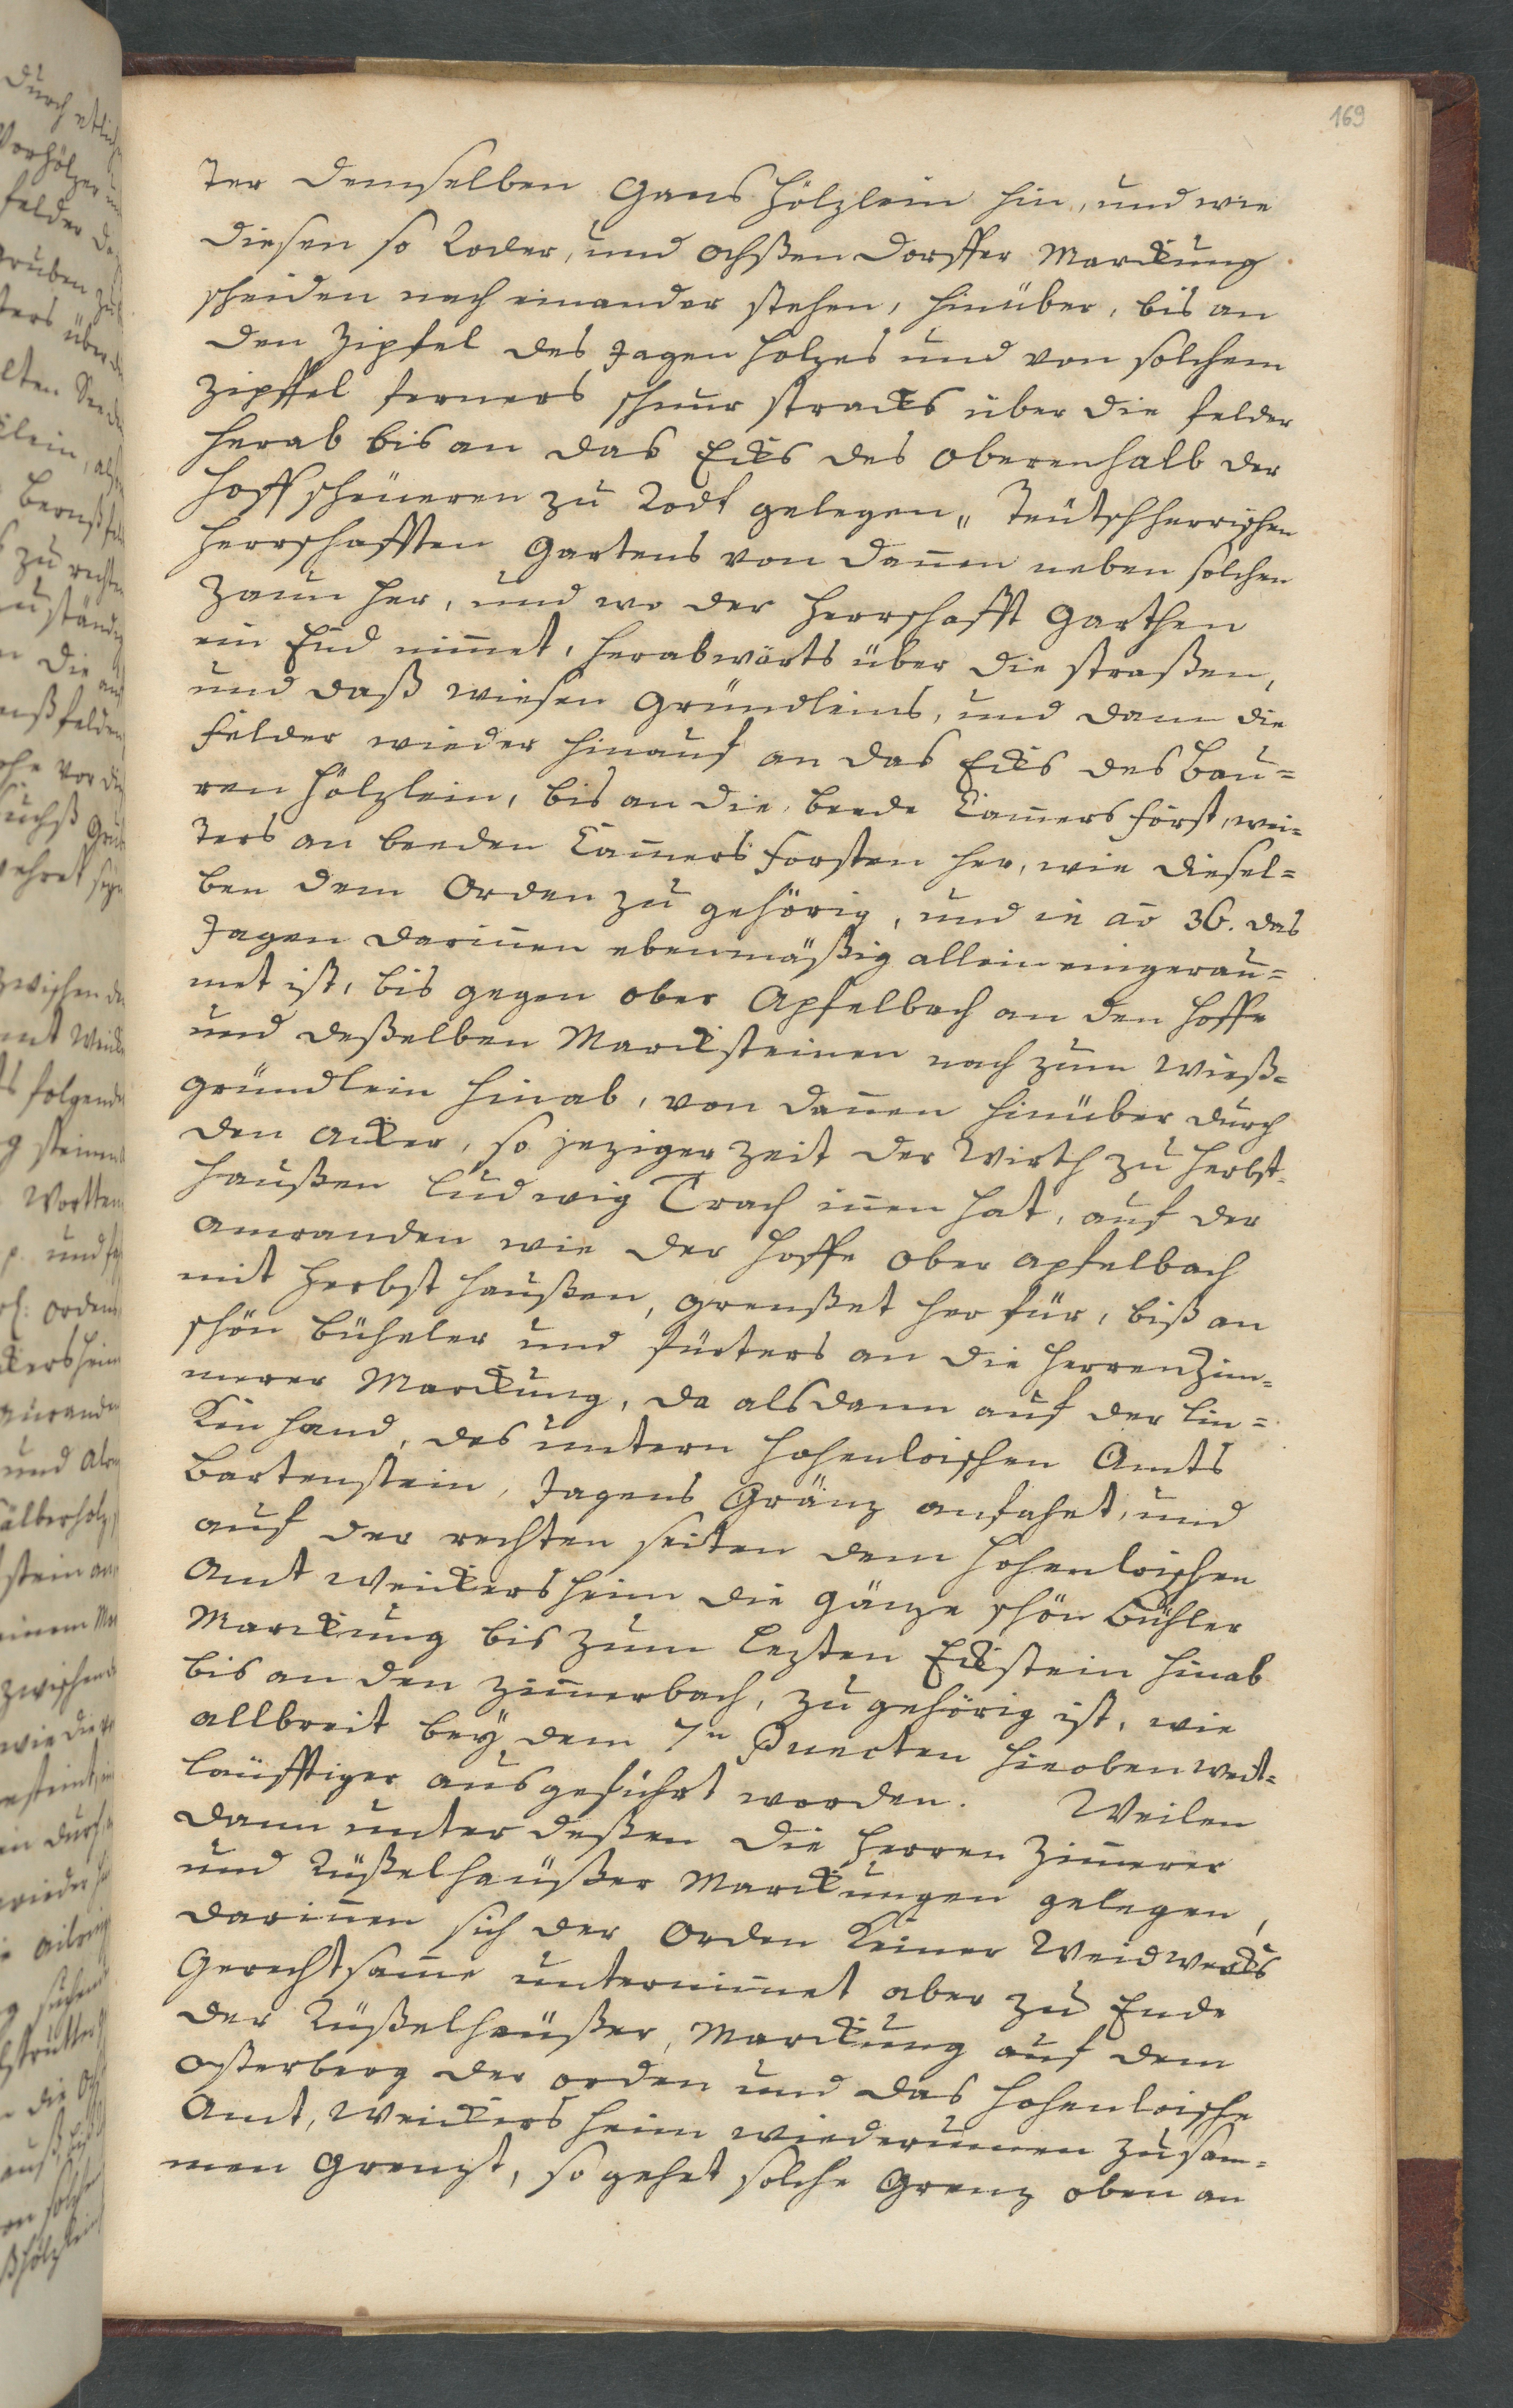 169
ter demselben Gans hölzlein hin, und wie
diesen so Roder, und Ochßen dorffer Marckung
scheiden nach einander stehen, hinüber, bis an
den Zipfel des Jagen holzes und von solchem
Zipffel ferners schnur stracks über die felder
herab bis an das Ecks des oberenhalb der
Hoff scheüeren zu Rodt gelegen„ Teütschherrischen
Herrschafften Gartens von dannen neben solchen
Zaun her, und wo der Herrschafft Garthen
ein End nimmet, herabwärts über die straßen,
und daß wiesen Gründleins, und dann die
felder wieder hinauf an das Ecks des Bau=
ren hölzlein, bis an die beede Cammers först, wei=
ters an beeden Cammers forsten her, wie diesel=
ben dem Orden zu gehörig, und in ao 36. das
Jagen darinnen ebenmäßig allein eingerau=
met ist, bis gegen ober Apfelbach an den Hoffe
und deßelben Marcksteinen nach zum Wieß=
gründlein hinab, von dannen hinüber durch
den Acker, so jeziger Zeit der Wirth zu Herbst=
haußen Ludwig Trach innen hat, auf der
anwanden wie der Hoffe ober apfelbach
mit Herbst haußen, grenßet her für, biß an
schön büheler und fürters an die Herrenzim=
merer Marckung, da als dann auf der lin=
ken hand, des untern Hohenloischen Amts
Bartenstein, Jagens Gränz anfahet, und
auf der rechten seiten dem Hohenloischen
Amt Weickersheim die gänze schön Bühler
Marckung bis zum lezten Eckstein hinab
bis an den Zimmerbach, zu gehörig ist, wie
allbreit beÿ dem 7n Puncten hieoben weit=
läufftiger ausgeführt worden. Weilen
dann unter deßen die Herren Zimmerer
und Rüßelhäußer Marckungen gelegen,
darinnen sich der Orden keiner Weidwercks
Gerechtsamme unternimmet aber zu Ende
der Rüßelhäußer, Marckung auf dem
Osterberg der orden und das Hohenloische
Amt, Weickersheim wiederummen zusam=
men Grenzt, so gehet solche Grenz oben an